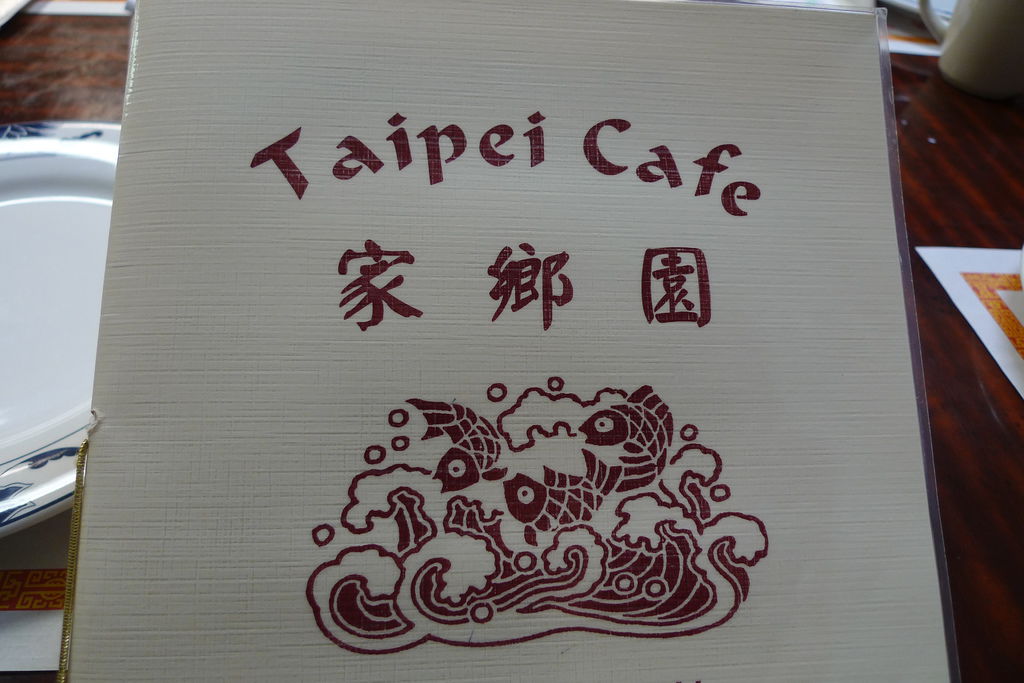 Taipei Cafe
家鄉園